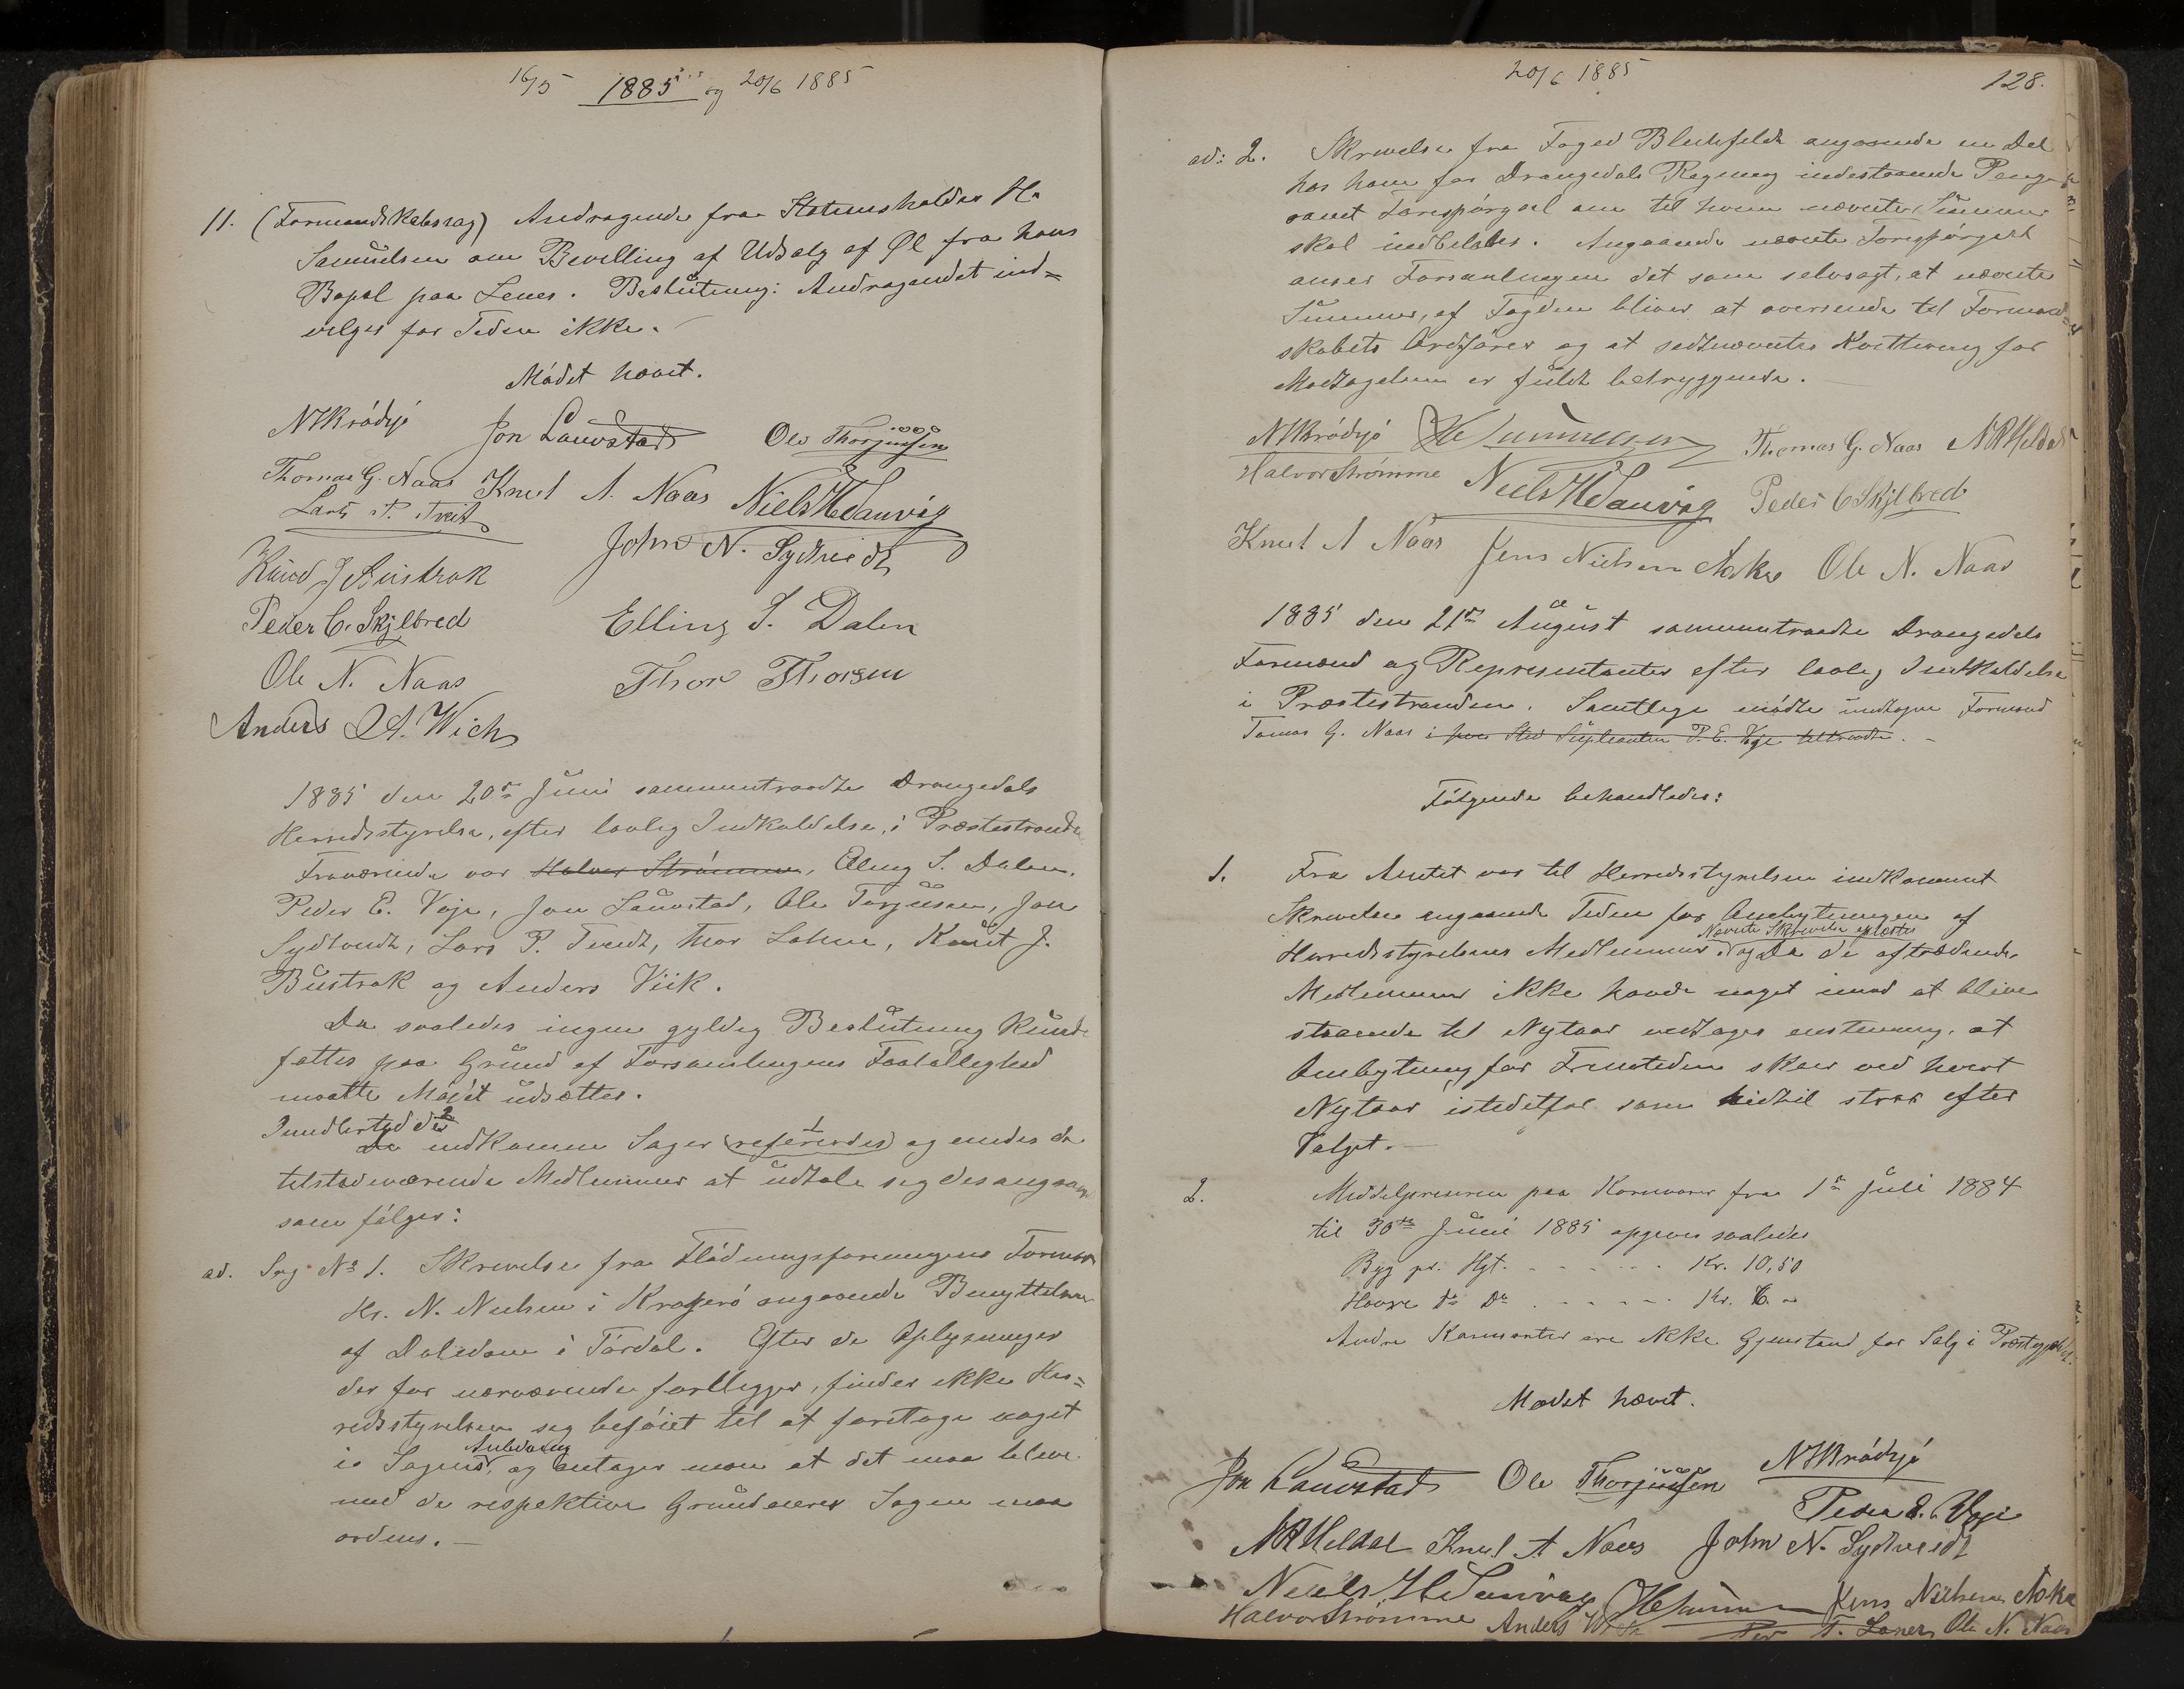 16/5 1885 og 20/6 1885
11. (Formandskabssag) Andragende fra Stationsholder H.
Samuelsen om Bevilling af Udsalg af Øl fra hans
Bopæl paa Lenes. Beslutning: Andragendet ind=
vilges for Tiden ikke.
Mödet hævet.
Jon Lauvstad Ole Thorjussen
Thomas G. Naas Knut A. Naas Niels H Sanvig
Lars P. Tveit
John N. Sydtveidt
Knud J Bustrak
Peder C. Skjelbred Elling S. Dalen
Ole N. Naas Thor Thorsen
Anders A. Wich
1885 den 20de Juni sammentraadte Drangedals
Herredsstyrelse, efter lovlig Indkaldelse, i Præstestranden
Fraværende var Halvor Strömme, Elling S. Dalen,
Peder E. Voje, Jon Lauvstad, Ole Torjusen, Jon
Sydtvedt, Lars P. Tveidt, Thor Lohne, Knut J.
Bustrak og Anders Viik.
Da saaledes ingen gyldig Beslutning kunde
fattes paa Grund af Forsamlingens Faatallighed
maatte Mödet udsættes.
Imidlertid de 2
De indkomne Sager (refereredes) 1 og enedes de
tilstedeværende Medlemmer at udtale sig desangaaende
som fölger:
ad. Sag No 1. Skrivelse fra Flödningsforeningens Formand
Hr. N. Nielsen i Kragerö angaaende Benyttelsen
af Daledam i Tördal. Efter de Oplysninger
der for nærværende forligger, finder ikke Her=
redsstyrelsen sig beföiet til at foretage noget
i Sagens Anledning, og antager man at det maa blive
med de respektive Grundeiere Sagen maa
ordens.
20/6 1885
128.
ad: 2. Skrivelse fra Foged Blichfeldt angaaende en Del
hos ham for Drangedals Regning indestaaende Penge
samt Forespörgsel om til hvem nævnte Summer
skal indbetales. Angaaende nævnte Forespörgsel
anser Forsamlingen det som selvsagt, at nævnte
Summer, af Fogden bliver at oversende til Formand=
skabets Ordförer og at sidstnævntes Kvittering for
Modtagelsen er fuldt betryggende.
Thomas G. Naas
Halvor Strömme Niels H Sanvig Peder C Skjelbred
Knut A Naas Jens Nielsen Aske Ole N. Naas
1885 den 21de August sammentraadte Drangedals
Formænd og Representanter efter lovlig Indkaldelse
i Præstestranden. Samtlige mödte undtagen Formand
Tomas G. Naas i hvis Sted Supleanten P. E. Voje tiltraadte.
Fölgende behandledes:
1. Fra Amtet var til Herredsstyrelsen indkommet
Skrivelse angaaende Tiden for Ombytningen af
Nævnte Skrivelse oplæstes
Herredsstyrelsens Medlemmer. og Da de aftrædende
Medlemmer ikke havde noget imod at blive
staaende til Nytaar vedtages enstemmig, at
Ombytning for Fremtiden skeer ved hvert
Nytaar istedetfor som hidtil strax efter
Valget.
2. Middelprisen paa Kornvarer fra 1ste Juli 1884
til 30te Juni 1885 opgives saaledes
Byg pr. Hgt. - - - - - - Kr. 10,50
Havre do Do - - - - - Kr. 6. "
Andre Kornsorter ere ikke Gjenstand for Salg i Præstegjeldet.
Mødet hævet.
Jon Lauvstad Ole Thorjussen
Peder E. Voje
Knut A Naas John N. Sydtveidt
Niels H Sanvig Jens Nielsen Aske
Halvor Strömme Anders Ole N. Naas